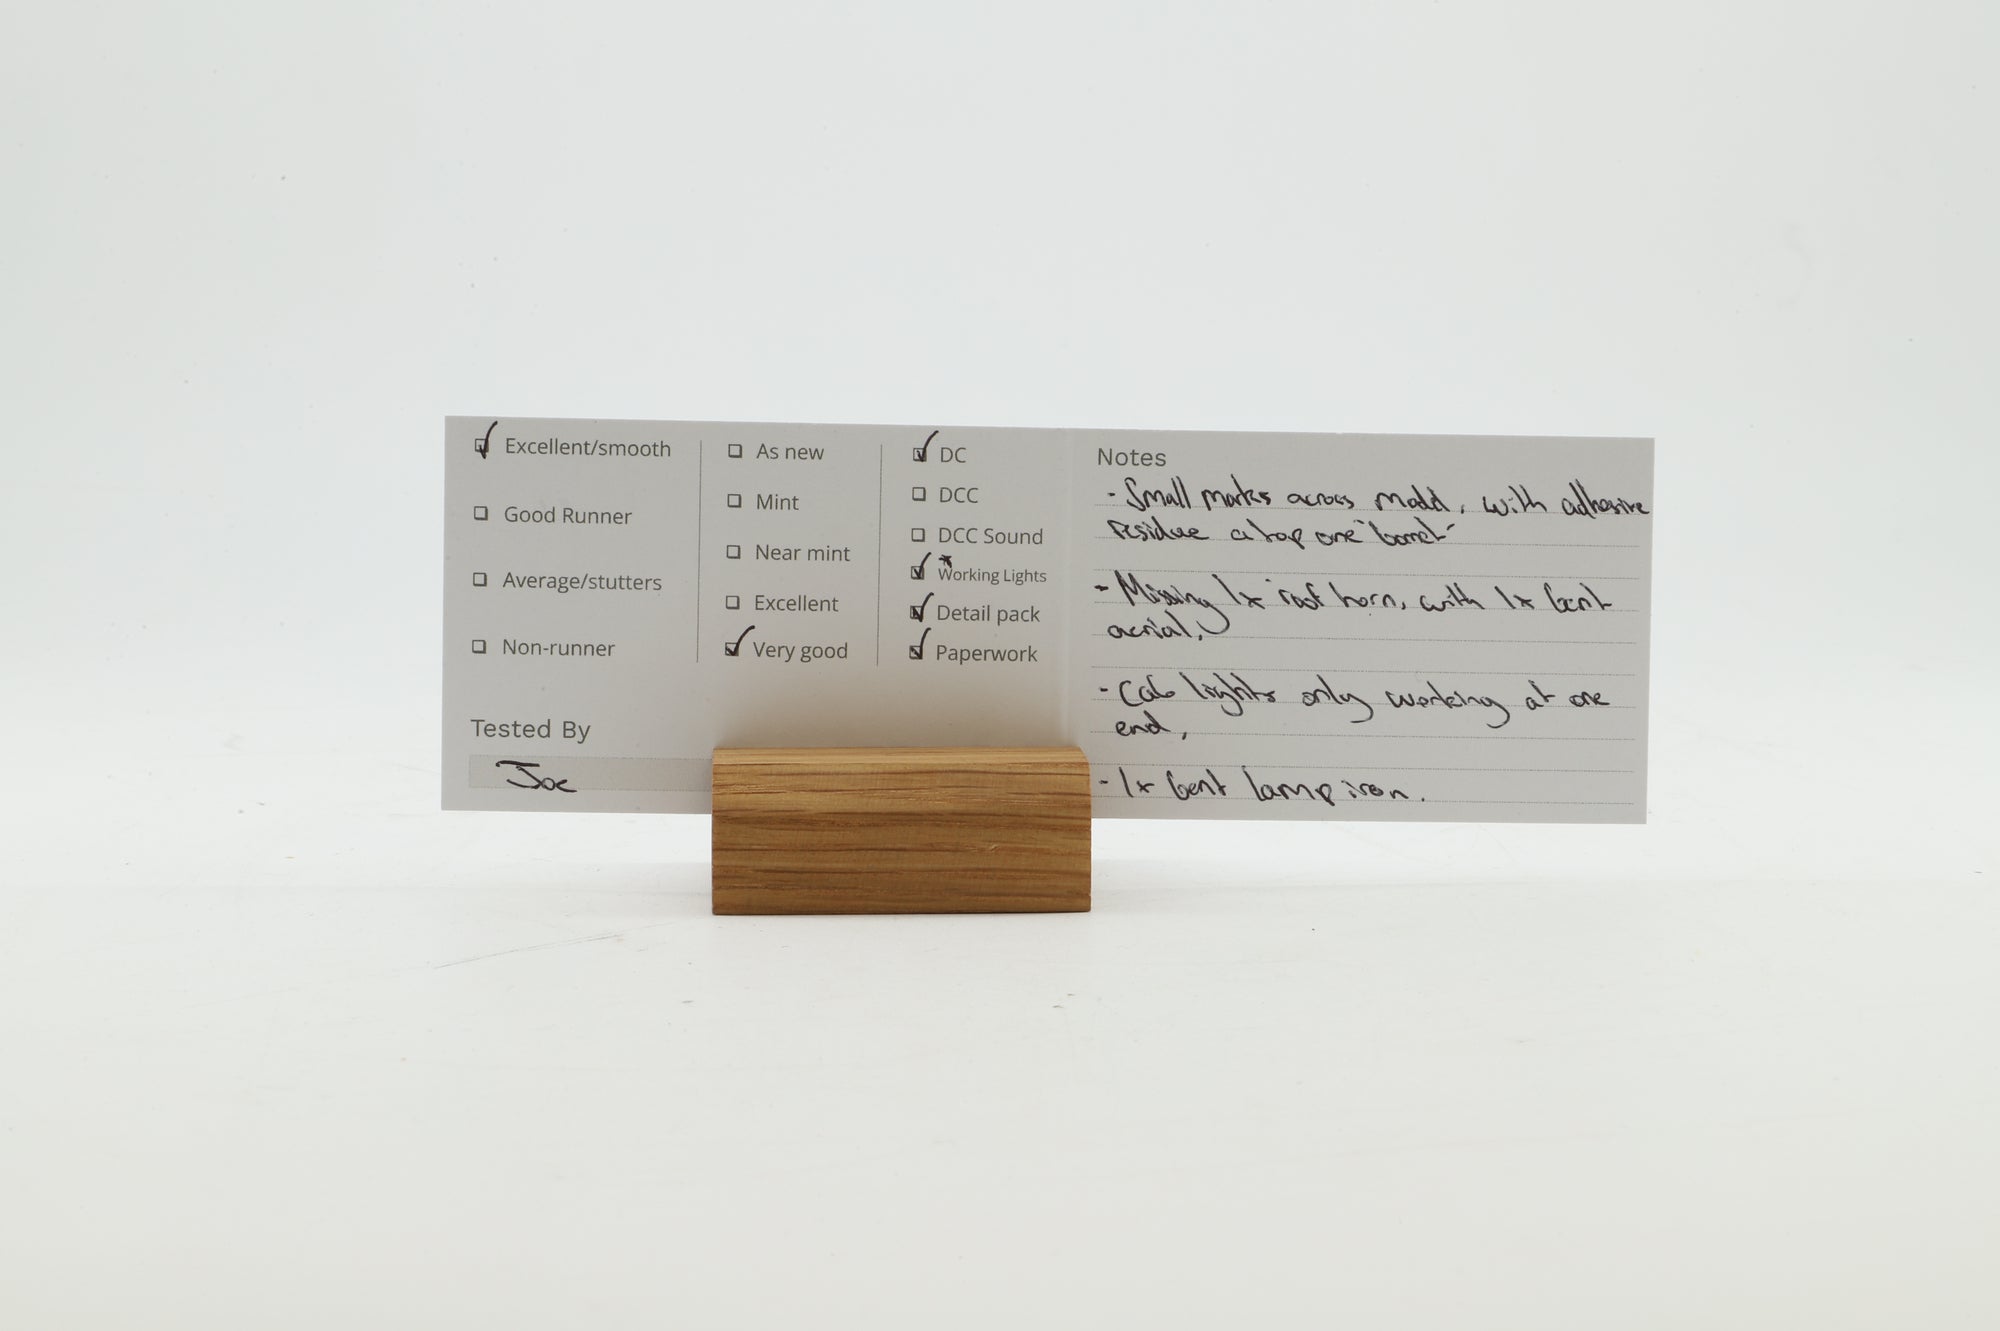 Excellent/smooth
Good Runner
Average/stutters
Non-runner
Tested By
Joe
As new
Mint
Near mint
Excellent
Very good
DC
DCC
DCC Sound
*
Working Lights
Detail pack
Paperwork
Notes
- Small marks across model, with adhesive
residue atop one "bonnet"
- Missing 1x roof horn, with 1x bent
aerial,
- Cab lights only working at one
end,
- 1x bent lamp iron.